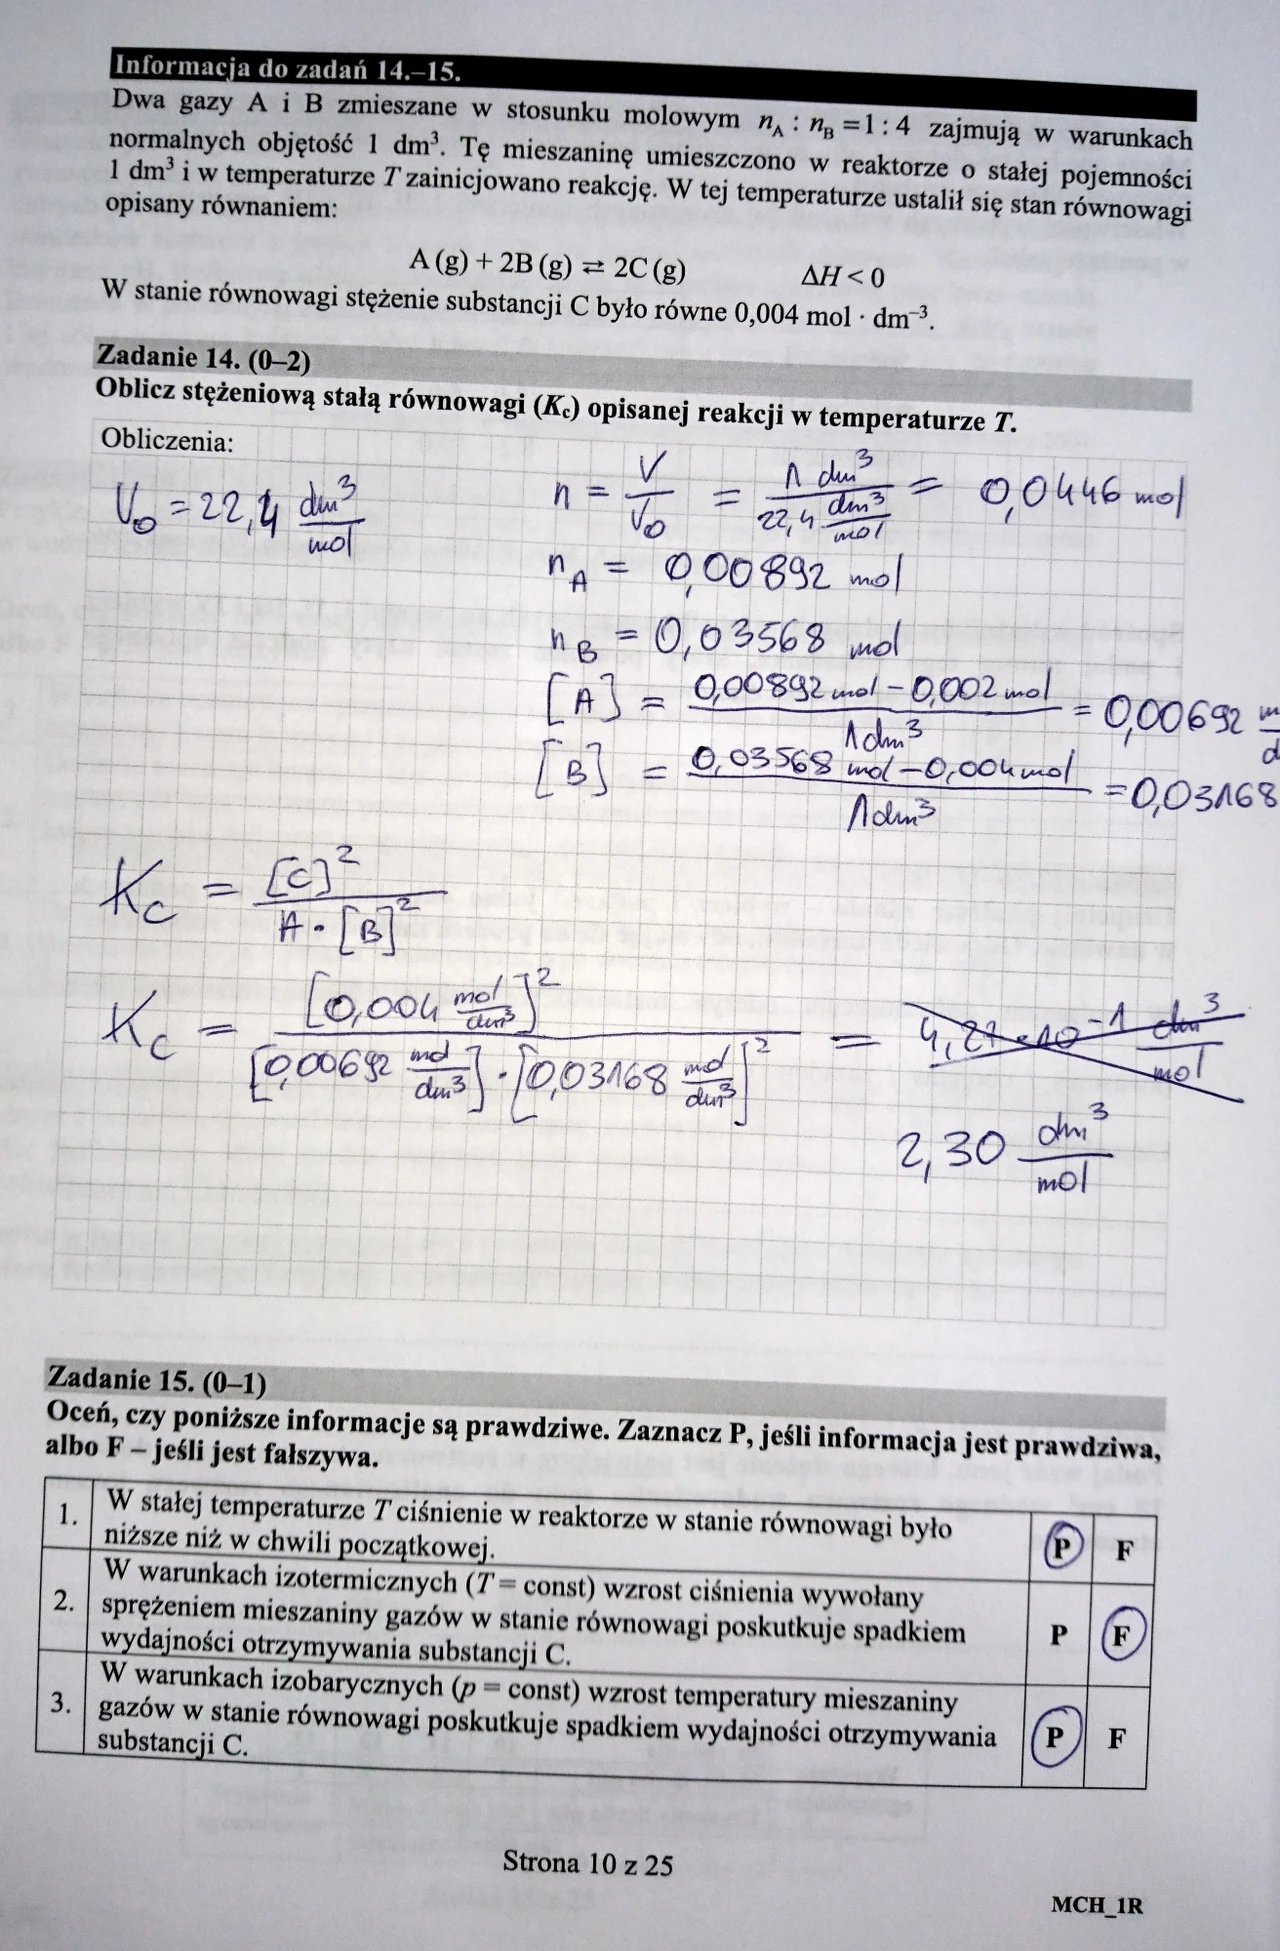 Informacja do zadań 14.–15.
Dwa gazy A i B zmieszane w stosunku molowym n_A : n_B =1 : 4 zajmują w warunkach
normalnych objętość 1 dm³. Tę mieszaninę umieszczono w reaktorze o stałej pojemności
1 dm³ i w temperaturze T zainicjowano reakcję. W tej temperaturze ustalił się stan równowagi
opisany równaniem:
A (g) + 2B (g) ⇄ 2C (g) ΔH < 0
W stanie równowagi stężenie substancji C było równe 0,004 mol · dm⁻³.
Zadanie 14. (0–2)
Oblicz stężeniową stałą równowagi (K_c) opisanej reakcji w temperaturze T.
Obliczenia:
V₀ = 22,4 dm³/mol n = V/V₀ = 1 dm³ / 22,4 dm³/mol = 0,0446 mol
n_A = 0,00892 mol
n_B = 0,03568 mol
[A] = 0,00892 mol – 0,002 mol / 1 dm³ = 0,00692 m/d
[B] = 0,03568 mol – 0,004 mol / 1 dm³ = 0,03168
K_c = [C]² / A · [B]²
K_c = [0,004 mol/dm³]² / [0,00692 mol/dm³] · [0,03168 mol/dm³]² = 4,27 · 10⁻¹ dm³/mol
2,30 dm³/mol
Zadanie 15. (0–1)
Oceń, czy poniższe informacje są prawdziwe. Zaznacz P, jeśli informacja jest prawdziwa,
albo F – jeśli jest fałszywa.
1. W stałej temperaturze T ciśnienie w reaktorze w stanie równowagi było
niższe niż w chwili początkowej. P F
W warunkach izotermicznych (T = const) wzrost ciśnienia wywołany
2. sprężeniem mieszaniny gazów w stanie równowagi poskutkuje spadkiem
wydajności otrzymywania substancji C. P F
W warunkach izobarycznych (p = const) wzrost temperatury mieszaniny
3. gazów w stanie równowagi poskutkuje spadkiem wydajności otrzymywania
substancji C. P F
Strona 10 z 25
MCH_1R